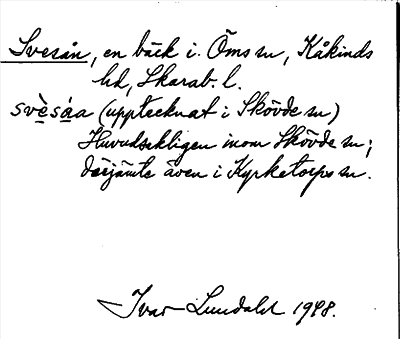 Svesån, en bäck i Öms sn, Kåkinds
hd, Skarab. l.
svèsáa (upptecknat i Skövde sn)
Huvudsakligen inom Skövde sn;
därjämte även i Kyrketorps sn.
Ivar Lundahl 1948.